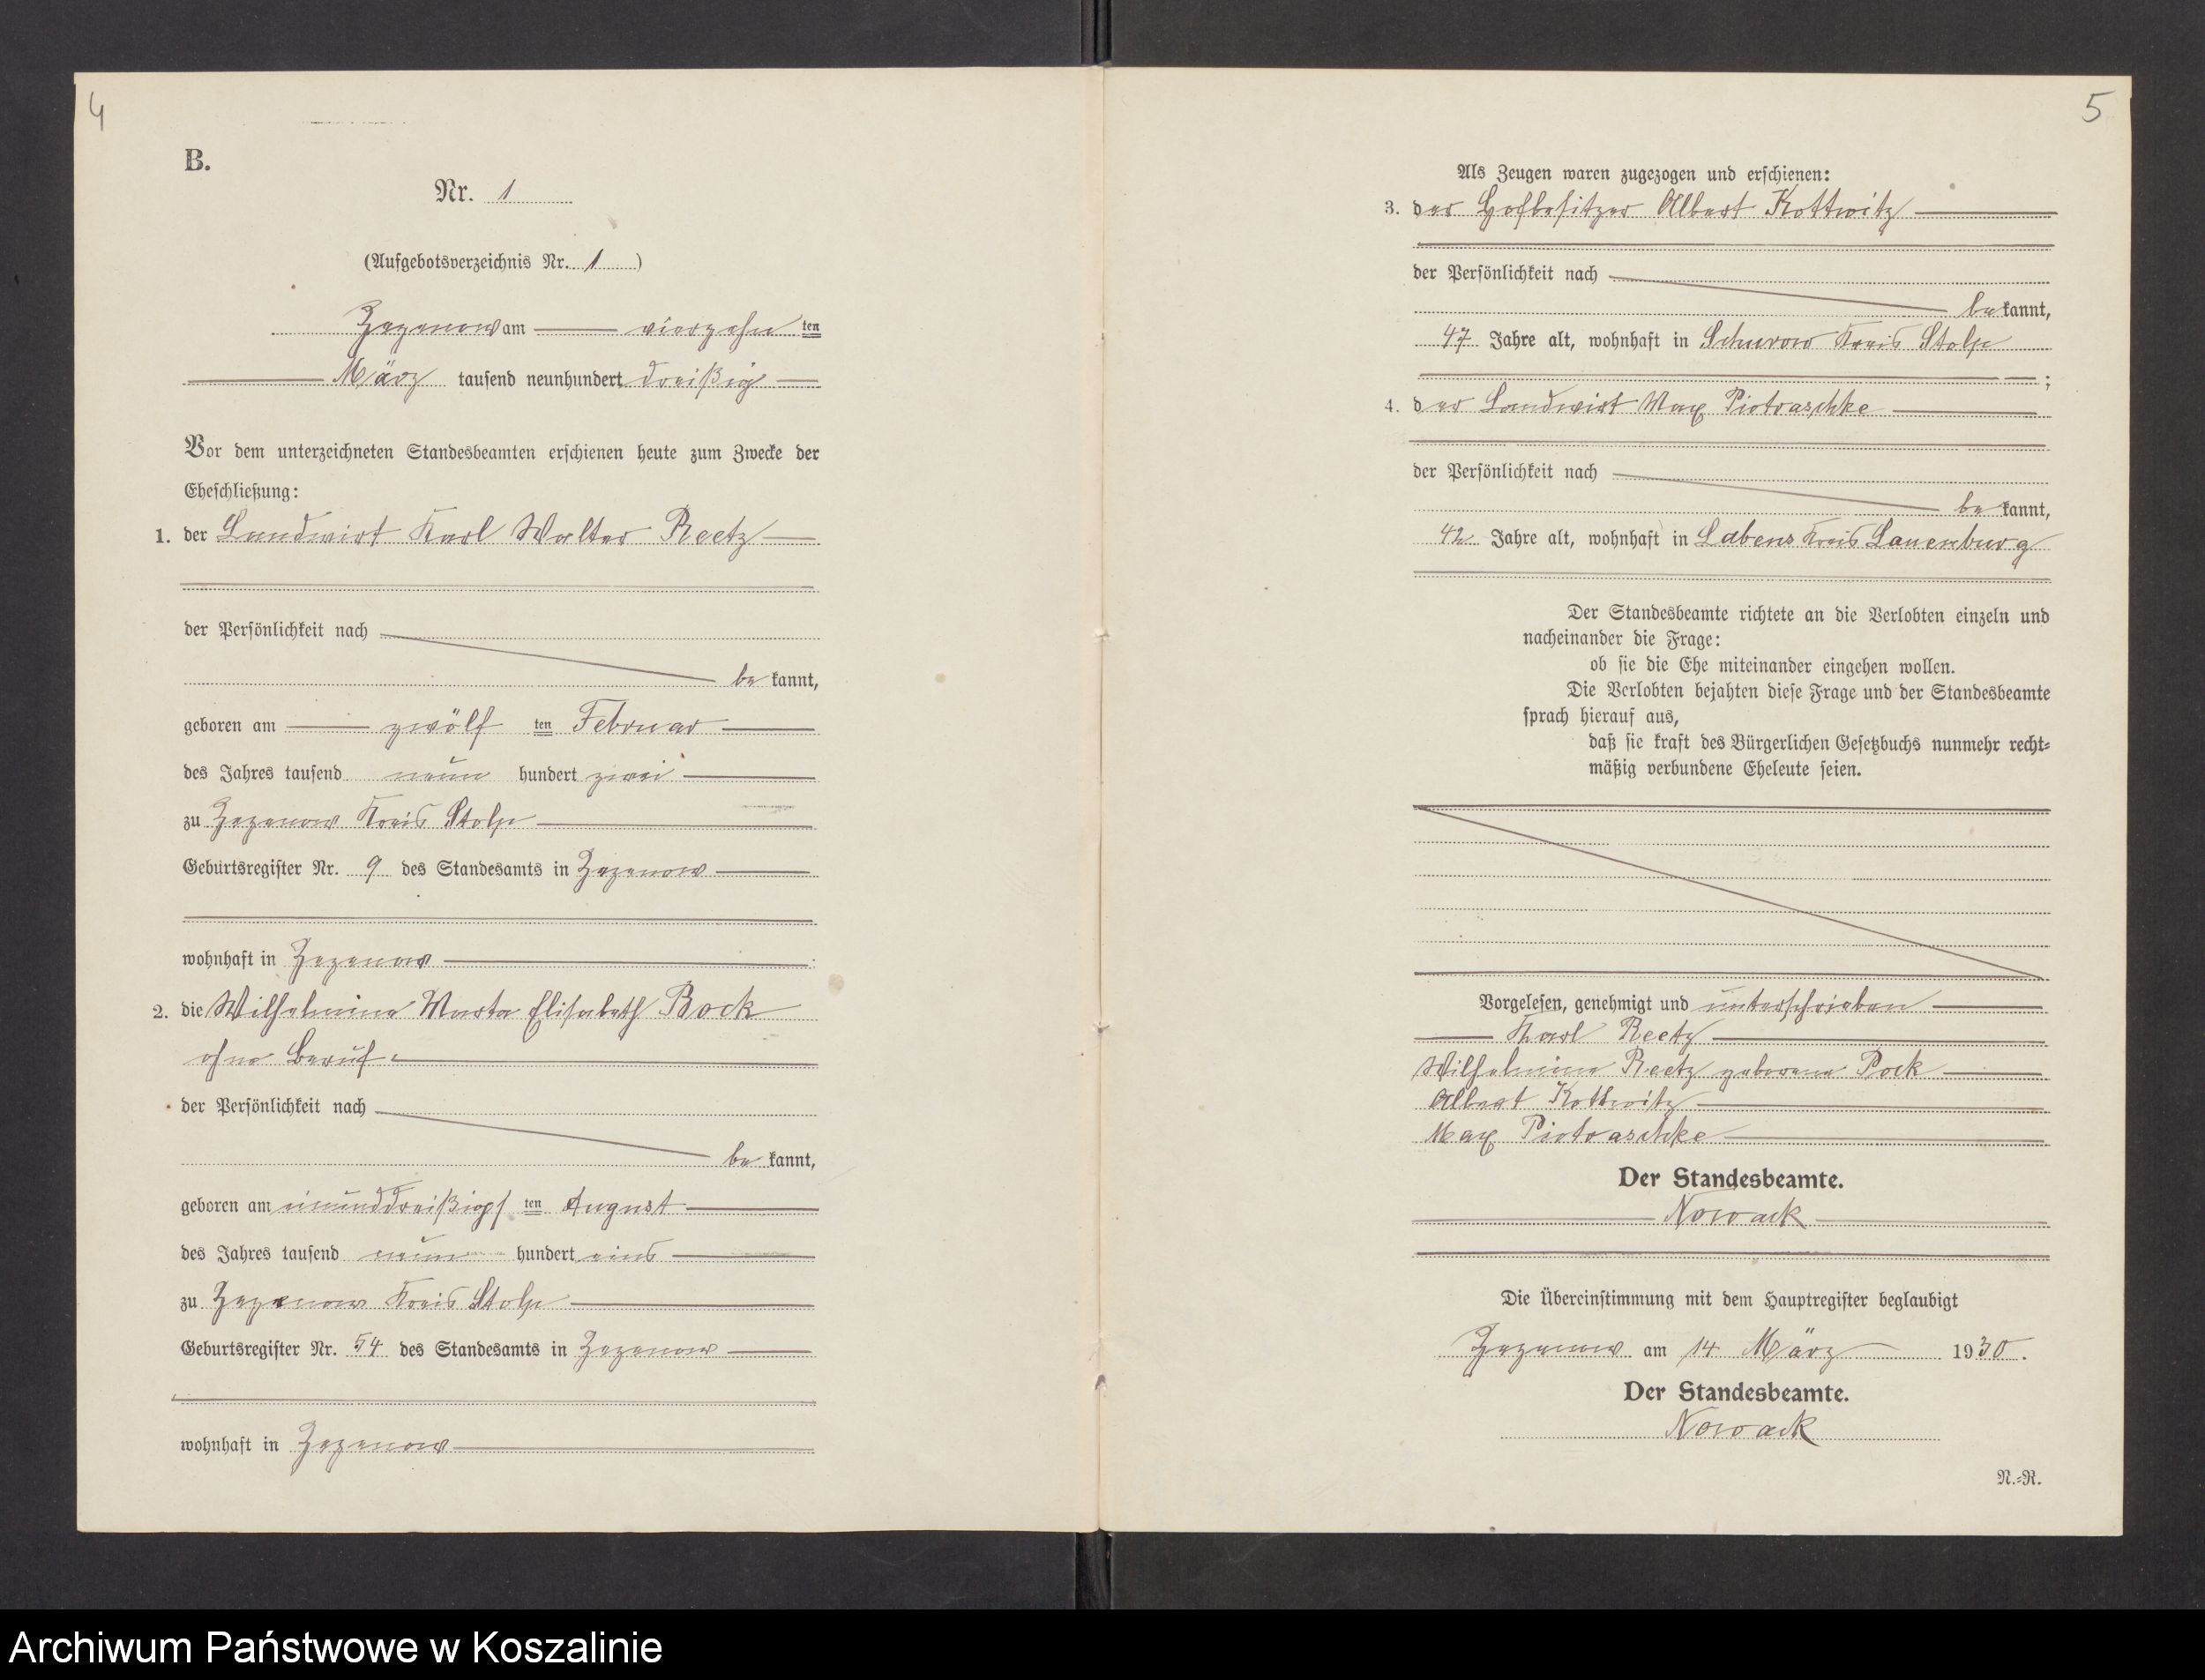 4
B.
Nr. 1
(Aufgebotsverzeichnis Nr. 1)
Zezenow am vierzehn ten
März tausend neunhundert dreißig
Vor dem unterzeichneten Standesbeamten erschienen heute zum Zwecke der
Eheschließung:
1. der Landwirt Karl Walter Reetz
der Persönlichkeit nach
be kannt,
geboren am zwölf ten Februar
des Jahres tausend neun hundert zwei
zu Zezenow Kreis Stolp
Geburtsregister Nr. 9 des Standesamts in Zezenow
wohnhaft in Zezenow
2. die Wilhelmine Marta Elisabeth Bock
ohne Beruf
der Persönlichkeit nach
be kannt,
geboren am einunddreißigs ten August
des Jahres tausend neun hundert eins
zu Zezenow Kreis Stolp
Geburtsregister Nr. 54 des Standesamts in Zezenow
wohnhaft in Zezenow
5
Als Zeugen waren zugezogen und erschienen:
3. der Hofbesitzer Albert Kottwitz
der Persönlichkeit nach
be kannt,
47 Jahre alt, wohnhaft in Schurow Kreis Stolp
;
4. der Landwirt Max Piotraschke
der Persönlichkeit nach
be kannt,
42 Jahre alt, wohnhaft in Labens Kreis Lauenburg
Der Standesbeamte richtete an die Verlobten einzeln und
nacheinander die Frage:
ob sie die Ehe miteinander eingehen wollen.
Die Verlobten bejahten diese Frage und der Standesbeamte
sprach hierauf aus,
daß sie kraft des Bürgerlichen Gesetzbuchs nunmehr recht-
mäßig verbundene Eheleute seien.
Vorgelesen, genehmigt und unterschrieben
Karl Reetz
Wilhelmine Reetz geborene Pock
Albert Kottwitz
Max Piotraschke
Der Standesbeamte.
Nowack
Die Übereinstimmung mit dem Hauptregister beglaubigt
Zezenow am 14 März 1930.
Der Standesbeamte.
Nowack
N.-R.
Archiwum Państwowe w Koszalinie